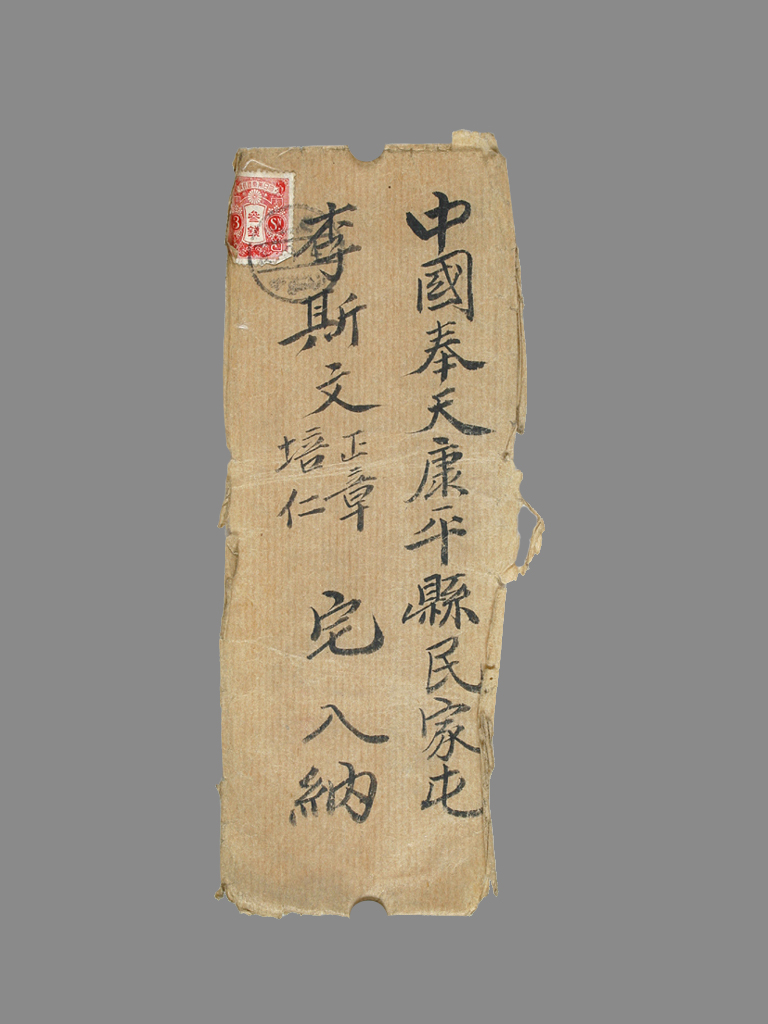 中國奉天康平縣民家屯
李斯文
正章
培仁
宅入納
參錢
3
Sn